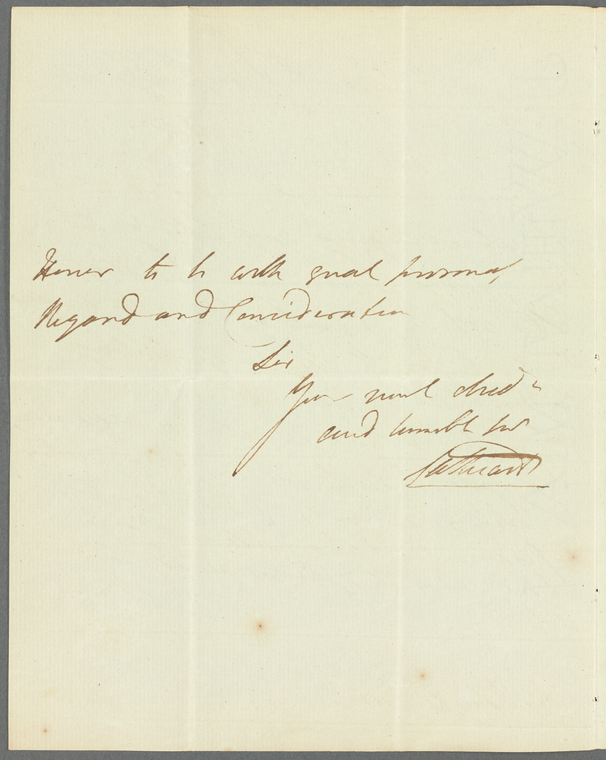 Honor to be with great personal
Regard and Consideration
Sir
Your most obed<sup>t</sup>
and humble Ser
Cathcart